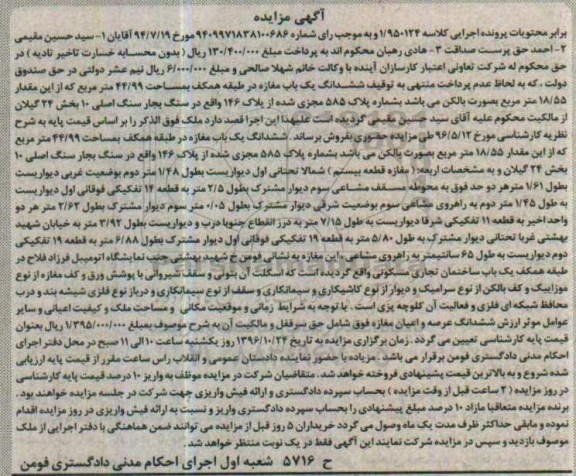 آگهی مزایده
برابر محتویات پرونده اجرایی کلاسه 1/950124 و به موجب رای شماره 9409971838100686 مورخ 94/7/19 آقایان 1- سید حسین مقیمی
2- احمد حق پرست صداقت 3- هادی رهبان محکوم اند به پرداخت مبلغ 130/400/000 ریال (بدون محسابه خسارت تاخیر تادیه) در
حق محکوم له شرکت تعاونی اعتبار کارسازان آینده با وکالت خانم شهلا صالحی و مبلغ 6/000/000 ریال نیم عشر دولتی در حق صندوق
دولت ، که به لحاظ عدم پرداخت منتهی به توقیف ششدانگ یک باب مغازه در طبقه همکف بمساحت 44/99 متر مربع که از این مقدار
18/55 متر مربع بصورت بالکن می باشد بشماره پلاک 585 مجزی شده از پلاک 146 واقع در سنگ بجار سنگ اصلی 10 بخش 24 گیلان
از مالکیت محکوم علیه آقای سید حسین مقیمی گردیده است علیهذا این اجرا قصد دارد ملک فوق الذکر را بر اساس قیمت پایه به شرح
نظریه کارشناسی مورخ 96/5/12 طی مزایده حضوری بفروش برساند . ششدانگ یک باب مغازه در طبقه همکف بمساحت 44/99 متر مربع
که از این مقدار 18/55 متر مربع بصورت بالکن می باشد بشماره پلاک 585 مجزی شده از پلاک 146 واقع در سنگ بجار سنگ اصلی 10
بخش 24 گیلان و به مشخصات اربعه: ( مغازه قطعه بیستم ) شمالا تحتانی اول دیواریست بطول 1/48 متر دوم بوضعیت غربی دیواریست
بطول 1/61 متر هر دو حد فوق به محوطه مسقف مشاعی سوم دیوار مشترک بطول 2/5 متر به قطعه 14 تفکیکی فوقانی اول دیواریست
به طول 1/45 متر دوم به راهروی مشاعی سوم بوضعیت شرقی دیوار مشترک بطول 0/05 متر سوم دیوار مشترک بطول 2/62 متر هر دو
واحد اخیر به قطعه 11 تفکیکی شرقا دیواریست به طول 7/15 متر به درز انقطاع جنوبا درب و دیواریست بطول 3/92 متر به خیابان شهید
بهشتی غربا تحتانی دیوار مشترک به طول 5/80 متر به قطعه 19 تفکیکی فوقانی اول دیوار مشترک بطول 6/88 متر به قطعه 19 تفکیکی
دوم دیواریست به طول 65 سانتیمتر به راهروی مشاعی . این مغازه به نشانی فومن خ شهید بهشتی جنب نمایشگاه اتومبیل فرزاد فلاح در
طبقه همکف یک باب ساختمان تجاری مسکونی واقع گردیده است که اسکلت آن بتونی و سقف شیروانی با پوشش ورق و کف مغازه از نوع
موزاییک و کف بالکن از نوع سرامیک و دیوار از نوع کاشیکاری و سیمانکاری و سقف از نوع سیمانکاری و درباز نوع فلزی شیشه بند و درب
محافظ شبکه ای فلزی و فعالیت آن کلوچه پزی است . با توجه به شرایط زمانی و موقعیت مکانی و مساحت ملک و کیفیت اعیانی و سایر
عوامل موثر ارزش ششدانگ عرصه و اعیان مغازه فوق شامل حق سرقفلی و مالکیت آن به شرح موصوف بمبلغ 1/395/000/000 ریال بعنوان
قیمت پایه کارشناسی تعیین می گردد .زمان برگزاری مزایده به تاریخ 1396/10/24 روز یکشنبه ساعت 10 الی 11 صبح در محل دفتر اجرای
احکام مدنی دادگستری فومن برقرار می باشد . مزیاده با حضور نماینده دادستان عمومی و انقلاب راس ساعت مقرر از قیمت پایه ارزیابی
شده شروع و به بالاترین قیمت پیشنهادی فروخته خواهد شد. متقاضیان شرکت در مزایده موظف به واریز 10 درصد قیمت پایه کارشناسی
در روز مزایده ( 2 ساعت قبل از وقت مزایده ) بحساب سپرده دادگستری و ارائه فیش واریزی جهت شرکت در جلسه مزایده خواهند بود .
برنده مزایده متعاقبا مازاد 10 درصد مبلغ پیشنهادی را بحساب سپرده دادگستری واریز و نسبت به ارائه فیش واریزی در روز مزایده اقدام
نموده و مابقی حداکثر ظرف مدت یک ماه وصول می گردد خریداران 5 روز قبل از مزایده می توانند ضمن هماهنگی با دفتر اجرایی از ملک
موصوف بازدید و سپس در مزایده شرکت نمایند این آگهی فقط در یک نوبت منتظر خواهد شد.
ح 5716 شعبه اول اجرای احکام مدنی دادگستری فومن